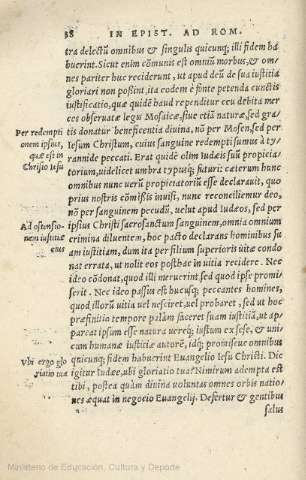 38 IN EPIST. AD ROM.
tra delectũ omnibus & singulis quicunq; illi fidem ha
buerint. Sicut enim cõmunis est omniũ morbus, & om
nes pariter huc reciderunt, ut apud deũ de sua iustitia
gloriari non possint, ita eodem è fonte petenda cunctis
iustificatio, quæ quidẽ haud rependitur ceu debita mer
ces obseruatæ legis Mosaicæ, siue etiã naturæ, sed gra
Per redempti
onem ipsius,
quæ est in
Christo Iesu
tis donatur beneficentia diuina, nõ per Mosen, sed per
Iesum Christum, cuius sanguine redempti sumus à ty
rannide peccati. Erat quidẽ olim Iudæis suũ propicia
torium, uidelicet umbra typusq; futuri: cæterum hunc
omnibus nunc uerũ propiciatoriũ esse declarauit, quo
prius nostris cõmissis inuisi, nunc reconciliemur deo,
nõ per sanguinem pecudũ, uelut apud Iudæos, sed per
Ad ostensio-
nem iustitiæ
eius
ipsius Christi sacrosanctum sanguinem, omnia omnium
crimina diluentem, hoc pacto declarans hominibus su
am iustitiam, dum ita per filium superioris uitæ condo
nat errata, ut nolit eos posthac in uitia recidere. Nec
ideo cõdonat, quod illi meruerint sed quod ipse promi
serit. Nec ideo passus est hucusq; peccantes homines,
quod illorũ uitia uel nesciret, uel probaret, sed ut hoc
præfinitio tempore palàm faceret suam iustitiã, ut ap
pareat ipsum esse natura uereq; iustum ex sese, & uni
cum humanæ iustitiæ autorẽ, idq; promiscue omnibus
Vbi ergo glo
riatio tua
quicunq; fidem habuerint Euangelio Iesu Christi. Dic
igitur Iudæe, ubi gloriatio tua? Nimirum adempta est
tibi, postea quàm diuina uoluntas omnes orbis natio-
nes æquat in negocio Euangelij. Defertur & gentibus
salus
Ministerio de Educación, Cultura y Deporte